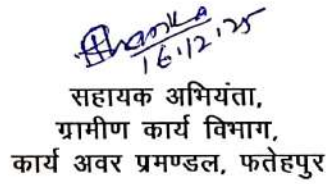 16.12.25
सहायक अभियंता,
ग्रामीण कार्य विभाग,
कार्य अवर प्रमण्डल, फतेहपुर